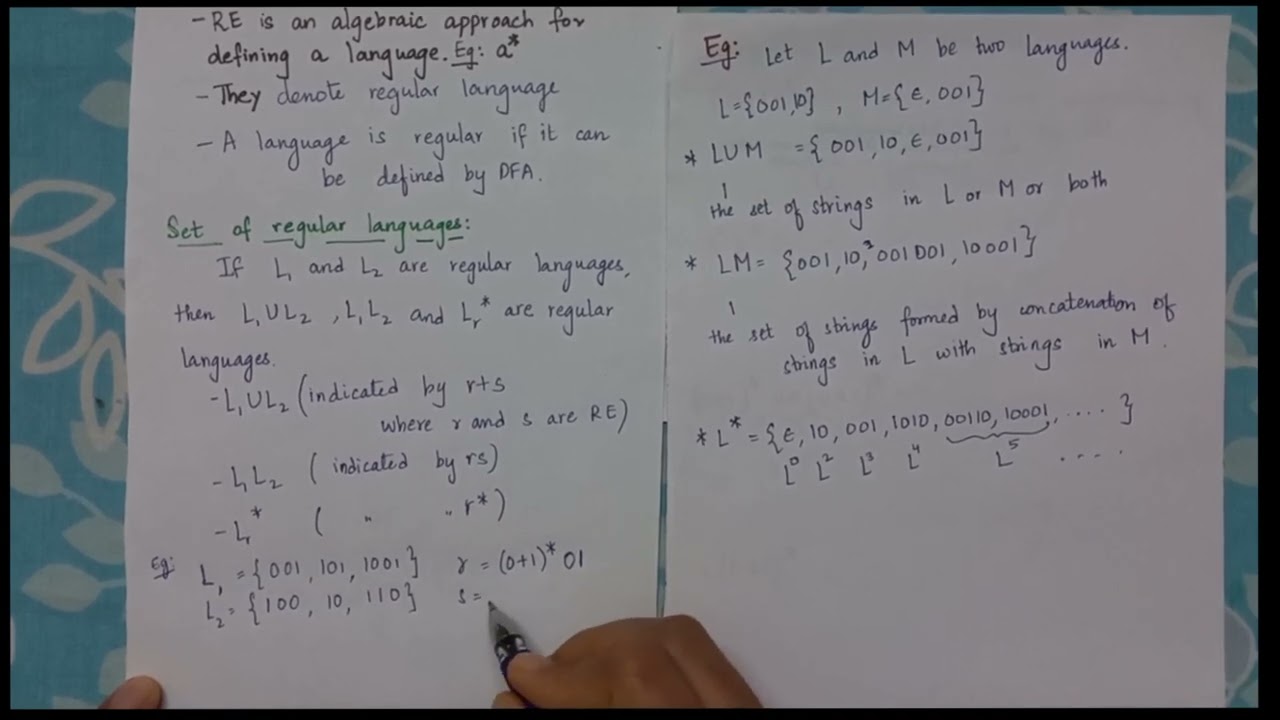 - RE is an algebraic approach for
defining a language. Eg: a*
- They denote regular language
- A language is regular if it can
be defined by DFA.
Set of regular languages:
If L₁ and L₂ are regular languages,
then L₁UL₂, L₁L₂ and Lᵣ* are regular
languages.
- L₁UL₂ (indicated by r+s
where r and s are RE)
- L₁L₂ (indicated by rs)
- L₁* ( " " r*)
Eg: L₁ = {001, 101, 1001} r = (0+1)* 01
L₂ = {100, 10, 110} s =
Eg: Let L and M be two languages.
L = {001,10}, M = {ε, 001}
* LUM = {001, 10, ε, 001}
the set of strings in L or M or both
* LM = {001, 10, 001001, 10001}
the set of strings formed by concatenation of
strings in L with strings in M.
* L* = {ε, 10, 001, 1010, 00110, 10001, .... }
L⁰ L² L³ L⁴ L⁵ ....